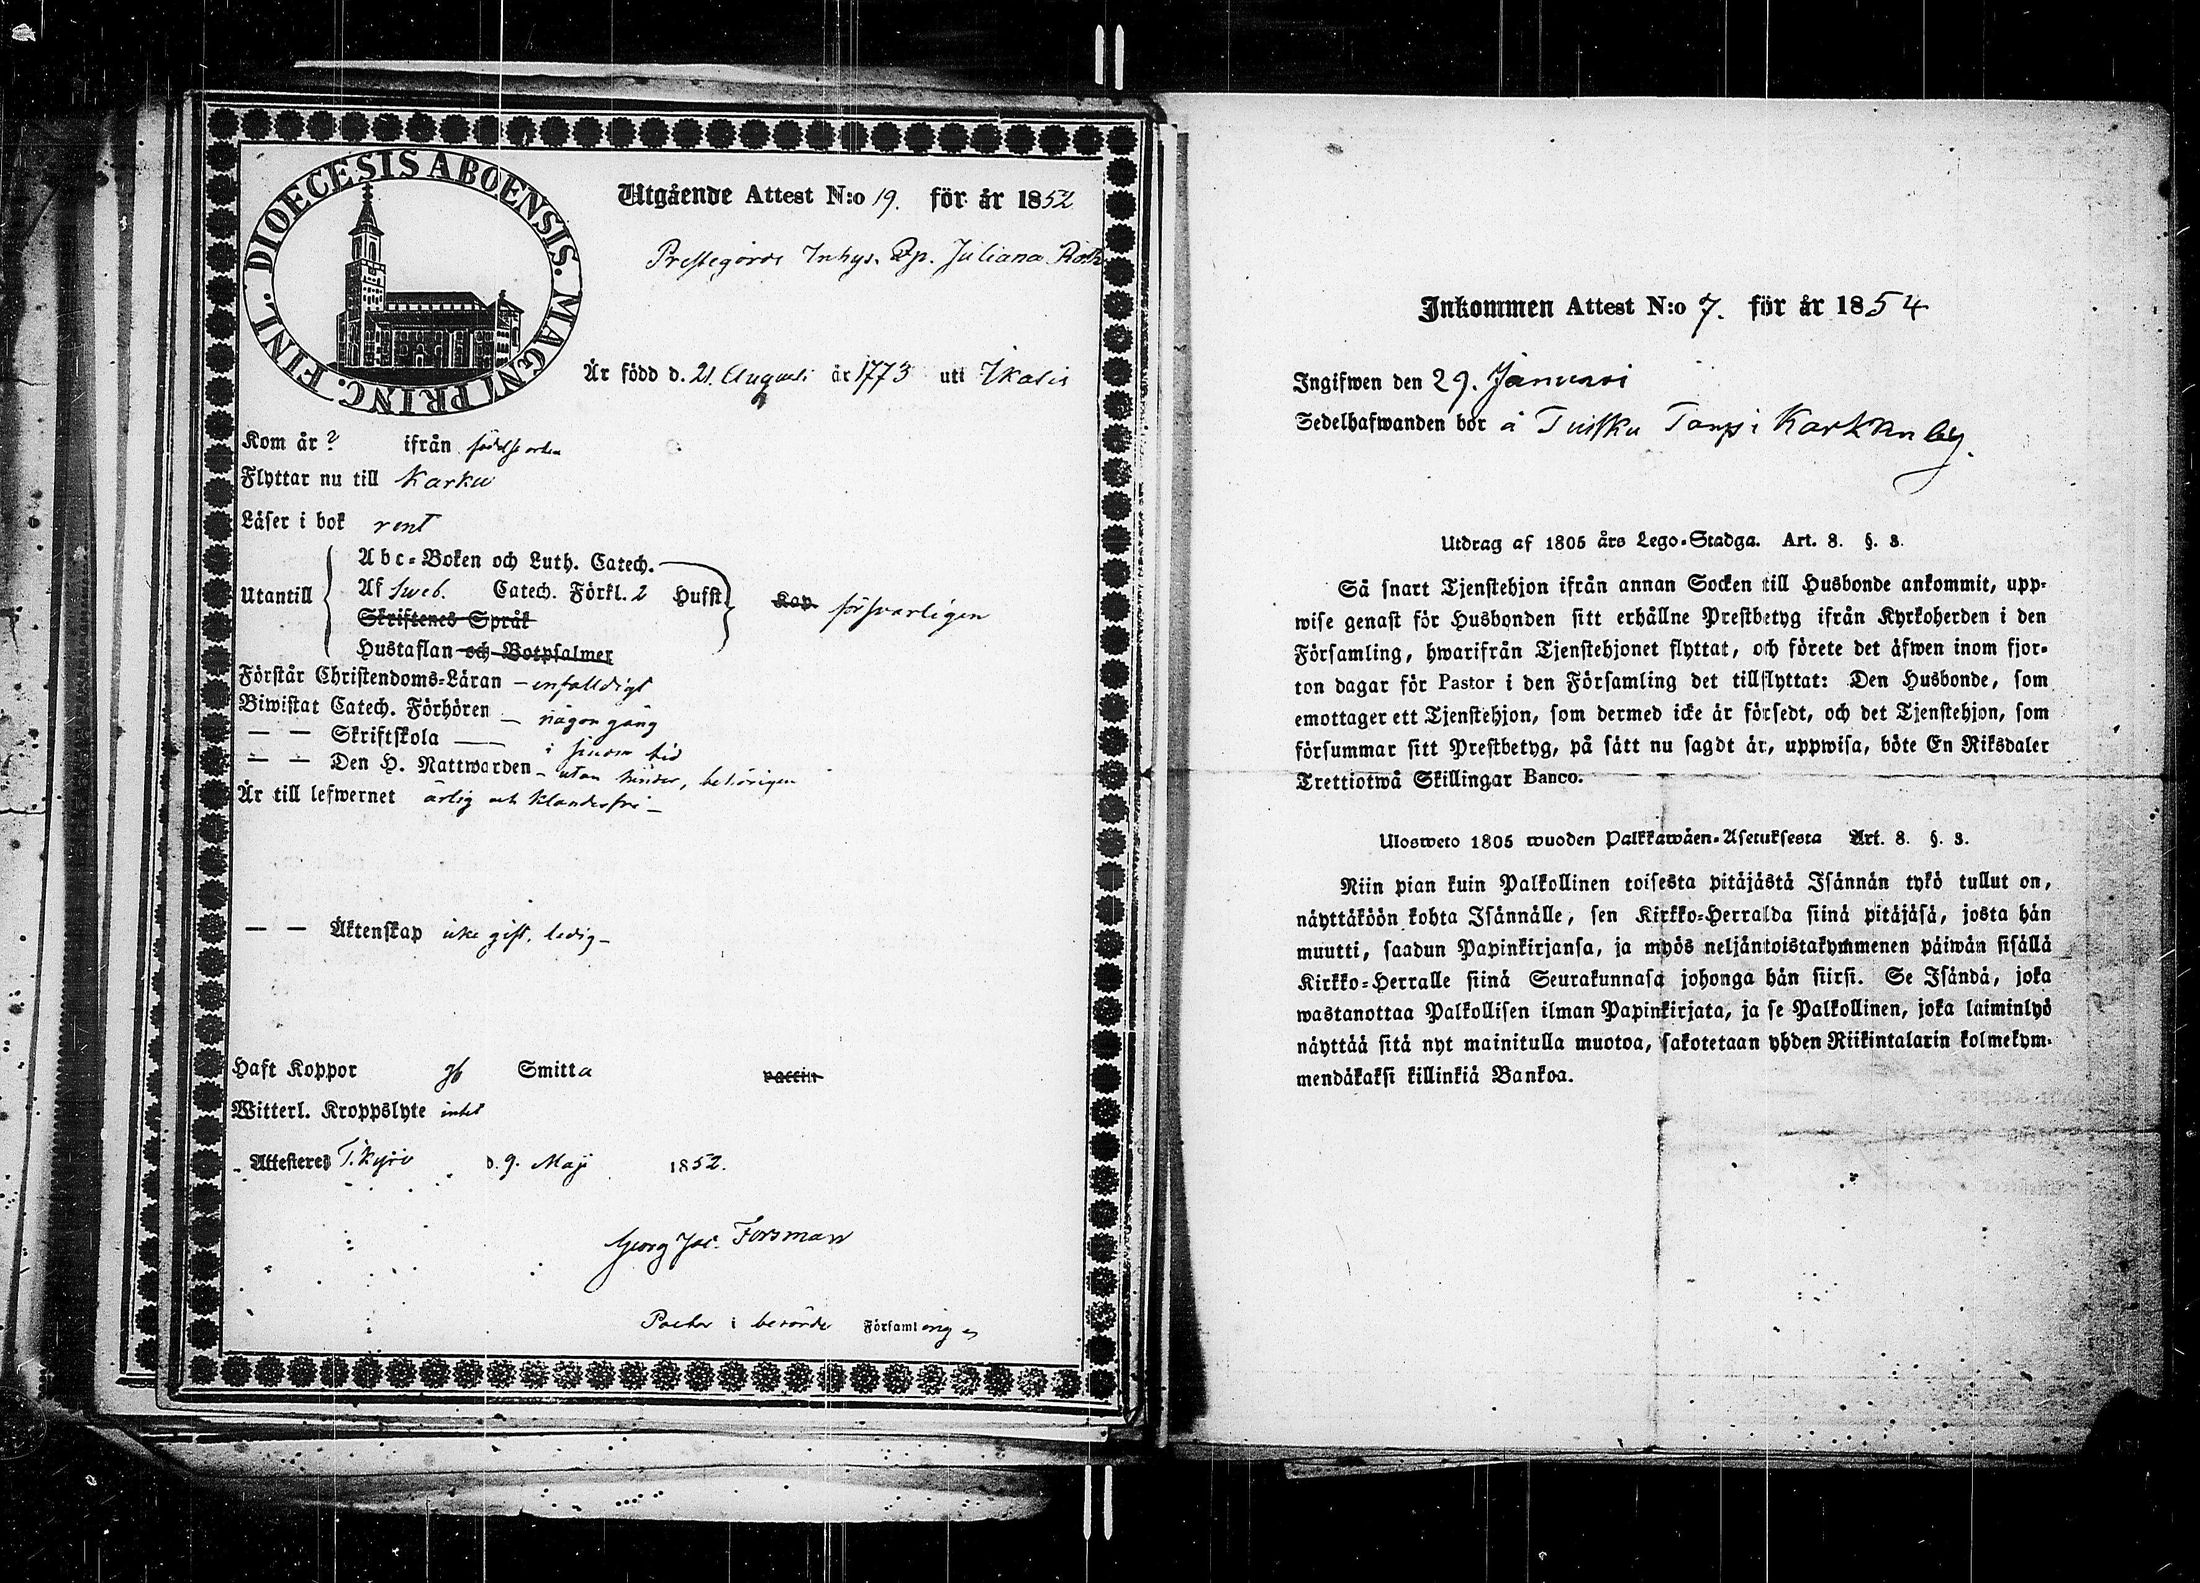 DIOECESIS ABOENSIS. MAGNI PRINC. FINL.
Utgående Attest N:o 19. för år 1852
Prestegårds Inhys. Juliana
Är född d. 21. Augusti år 1773 uti Ikalis
Kom år ? ifrån födelse orten
Flyttar nu till Karku
Läser i bok rent
Utantill
Abc-Boken och Luth. Catech.
Af Sweb. Catech. Förkl. 2 Hufst. Kap. försvarligen
Skriftenes Språk
Hustaflan och Botpsalmer
Förstår Christendoms-Läran – enfaldigt
Biwistat Catech. Förhören – någon gång
— — Skriftskola — i sinom tid
— — Den H. Nattwarden – utan hinder, behörigen
Är till lefwernet ärlig och klanderfri –
— — Äktenskap icke gift, ledig –
Haft Koppor Smitta vaccin
Witterl. Kroppslyte intet
Attesteres T. Kyro d. 9. Maji 1852.
Georg Jac. Forsman
Pastor i berörde Församling
Inkommen Attest N:o 7. för år 1854
Ingifwen den 29. Januari
Sedelhafwanden bor å Tuisku Torp i Karkku by.
Utdrag af 1805 års Lego-Stadga. Art. 8. §. 3.
Så snart Tjenstehjon ifrån annan Socken till Husbonde ankommit, upp-
wise genast för Husbonden sitt erhållne Prestbetyg ifrån Kyrkoherden i den
Församling, hwarifrån Tjenstehjonet flyttat, och förete det äfwen inom fjor-
ton dagar för Pastor i den Församling det tillflyttat: Den Husbonde, som
emottager ett Tjenstehjon, som dermed icke är försedt, och det Tjenstehjon, som
försummar sitt Prestbetyg, på sätt nu sagdt är, uppwisa, böte En Riksdaler
Trettiotwå Skillingar Banco.
Ulosweto 1805 wuoden Palkkawäen-Asetuksesta Art. 8. §. 3.
Niin pian kuin Palkollinen toisesta pitäjästä Isännän tykö tullut on,
näyttäköön kohta Isännälle, sen Kirkko-Herralda siinä pitäjäsä, josta hän
muutti, saadun Papinkirjansa, ja myös neljäntoistakymmenen päiwän sisällä
Kirkko-Herralle siinä Seurakunnasa johonga hän siirsi. Se Isändä, joka
wastanottaa Palkollisen ilman Papinkirjata, ja se Palkollinen, joka laiminlyö
näyttää sitä nyt mainitulla muotoa, sakotetaan yhden Riikintalarin kolmekym-
mendäkaksi killinkiä Bankoa.